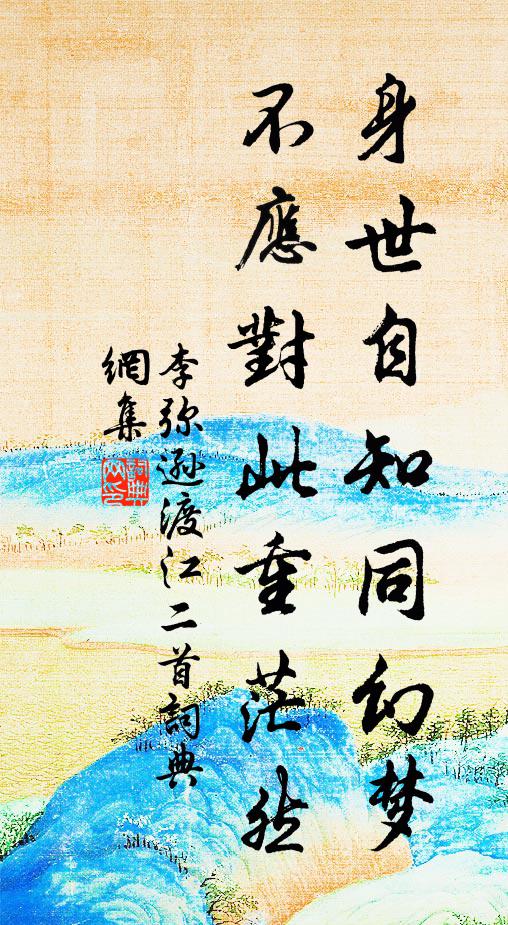 身世自知同幻梦
不應對此重茫然
李弥遜渡江二首詞典
網集
詞典
网印